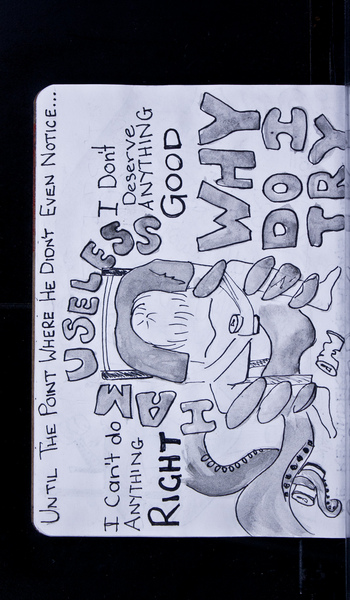 UNTIL THE POINT WHERE HE DIDN'T EVEN NOTICE...
I Can't do
ANYTHING
RIGHT
I AM USELESS
I Don't
Deserve
ANYTHING
GOOD
WHY
DO I
TRY